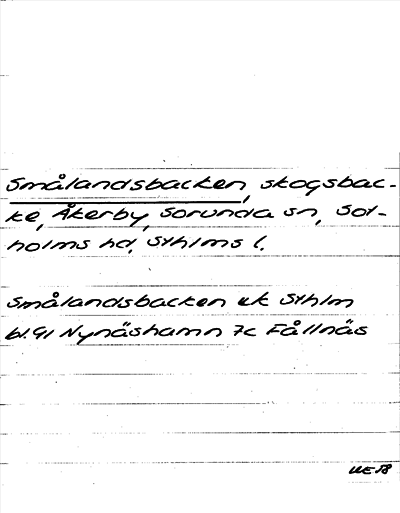 Smålandsbacken, skogsbac-
ke, Åkerby, Sorunda sn, Sot-
holms hd, Sthlms l.
Smålandsbacken ek Sthlm
bl. 91 Nynäshamn 7c Fållnäs
WE 58